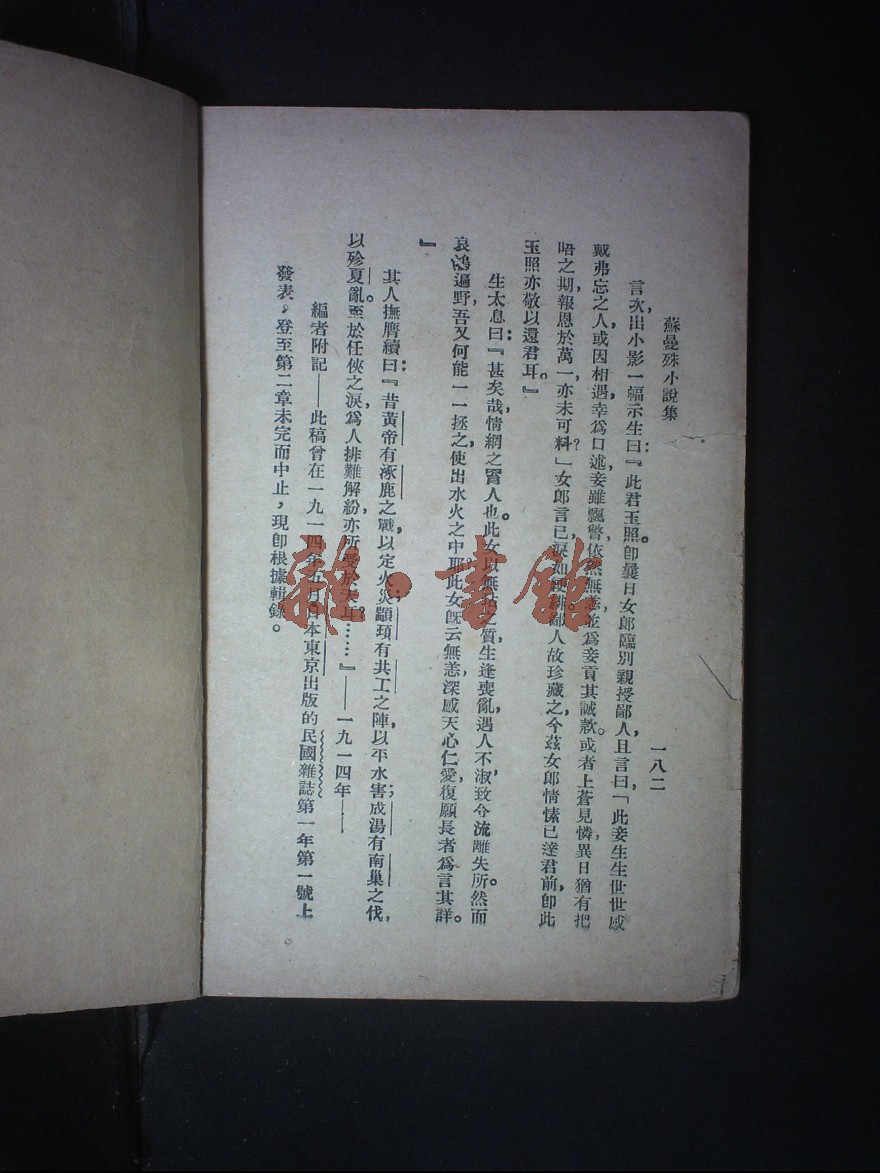 蘇曼殊小說集
一八二
言次，出小影一幅示生曰：『此君玉照，卽曩日女郎臨別親授鄙人，且言曰，「此妾生生世世感
戴弗忘之人，或因相遇，幸爲口述，妾雖飄瞥，依然無恙，並爲妾貢其誠款。或者上蒼見憐，異日猶有把
晤之期，報恩於萬一，亦未可料？」女郎言已，淚如綆縻。鄙人故珍藏之，今茲女郎情愫已達君前，卽此
玉照亦敬以還君耳。』
生太息曰：『甚矣哉，情網之罥人也。此女以無玷之質，生逢喪亂，遇人不淑，致令流離失所。然而
哀鴻遍野，吾又何能一一拯之，使出水火之中耶，此女旣云無恙，深感天心仁愛，復願長者爲言其詳。
』
其人撫膺續曰：『昔黃帝有涿鹿之戰，以定火災；顓頊有共工之陣，以平水害；成湯有南巢之伐，
以殄夏亂。至於任俠之淚，爲人排難解紛，亦所受於天耳？……』——一九一四年——
編者附記——此稿曾在一九一四年五月日本東京出版的民國雜誌第一年第一號上
發表，登至第二章未完而中止，現卽根據輯錄。
雜·書館